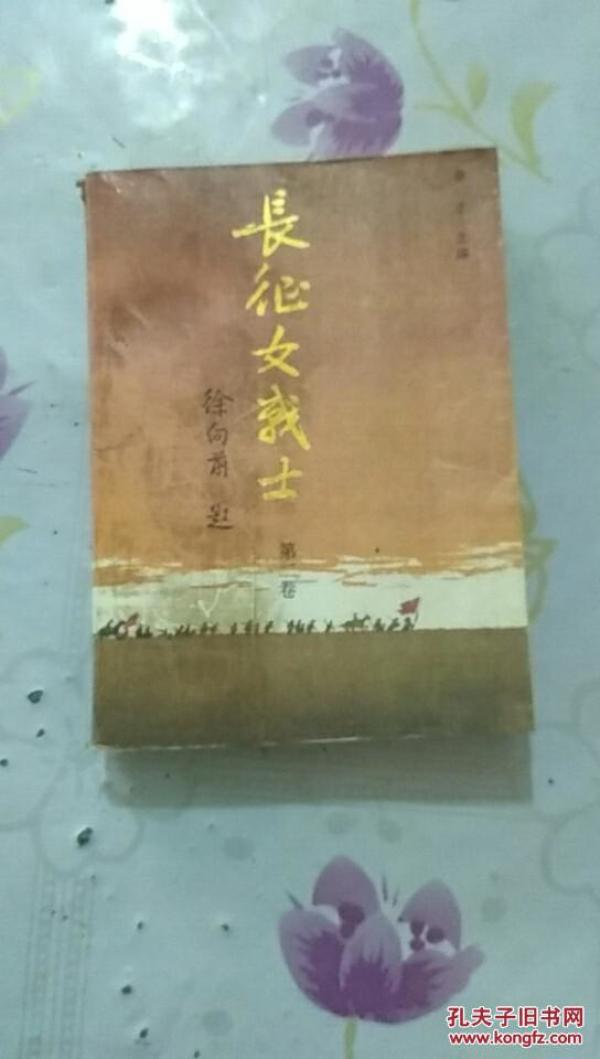 長征女战士
徐向前 题
第二卷
主编
孔夫子旧书网
www.kongfz.com